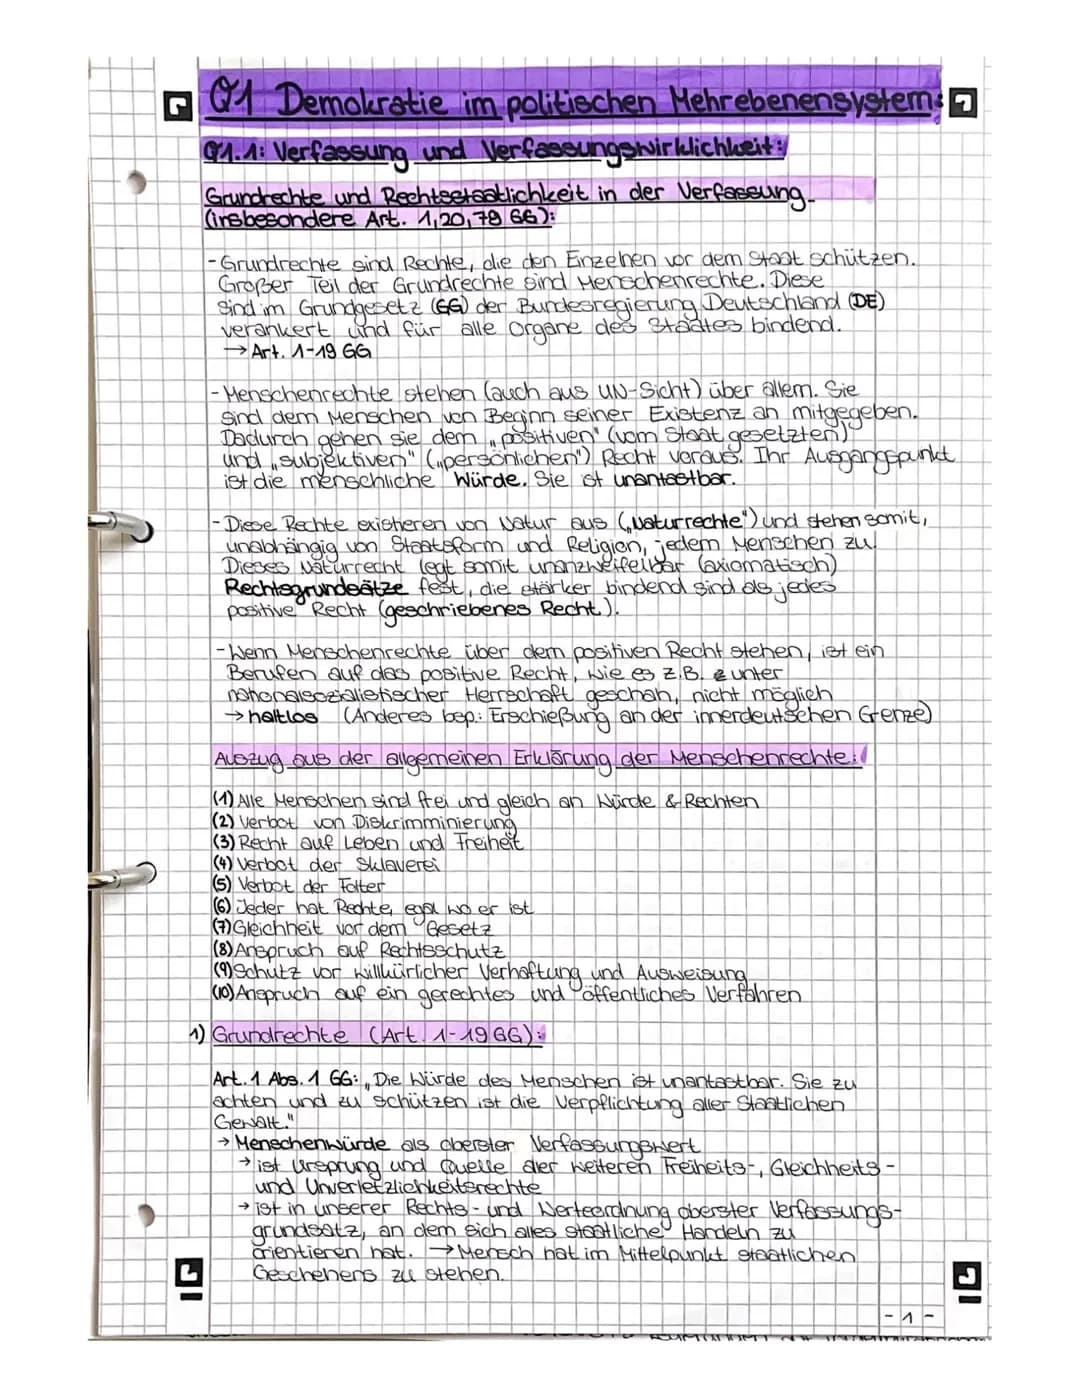 Q1 Demokratie im politischen Mehrebenensystem:
Q1.1: Verfassung und Verfassungswirklichkeit:
Grundrechte und Rechtsstaatlichkeit in der Verfassung
(insbesondere Art. 1,20,79 GG):
- Grundrechte sind Rechte, die den Einzelnen vor dem Staat schützen.
Großer Teil der Grundrechte sind Menschenrechte. Diese
sind im Grundgesetz (GG) der Bundesregierung Deutschland (DE)
verankert und für alle Organe des Staates bindend.
→ Art. 1-19 GG
- Menschenrechte stehen (auch aus UN-Sicht) über allem. Sie
sind dem Menschen von Beginn seiner Existenz an mitgegeben.
Dadurch gehen sie dem „positiven" (vom Staat gesetzten)
und „subjektiven" („persönlichen") Recht voraus. Ihr Ausgangspunkt
ist die menschliche Würde. Sie ist unantastbar.
- Diese Rechte existieren von Natur aus („Naturrechte") und stehen somit,
unabhängig von Staatsform und Religion, jedem Menschen zu.
Dieses Naturrecht legt somit unanzweifelbar (axiomatisch)
Rechtsgrundsätze fest, die stärker bindend sind als jedes
positive Recht (geschriebenes Recht.).
- Wenn Menschenrechte über dem positiven Recht stehen, ist ein
Berufen auf das positive Recht, wie es z.B. unter
nationalsozialistischer Herrschaft geschah, nicht möglich
→ haltlos (Anderes bsp.: Erschießung an der innerdeutschen Grenze)
Auszug aus der allgemeinen Erklärung der Menschenrechte:
(1) Alle Menschen sind frei und gleich an Würde & Rechten
(2) Verbot von Diskrimminierung
(3) Recht auf Leben und Freiheit
(4) Verbot der Sklaverei
(5) Verbot der Folter
(6) Jeder hat Rechte, egal wo er ist
(7) Gleichheit vor dem Gesetz
(8) Anspruch auf Rechtsschutz
(9) Schutz vor willkürlicher Verhaftung und Ausweisung
(10) Anspruch auf ein gerechtes und öffentliches Verfahren
1) Grundrechte (Art. 1-19 GG):
Art. 1 Abs. 1 GG: „Die Würde des Menschen ist unantastbar. Sie zu
achten und zu schützen ist die Verpflichtung aller Staatlichen
Gewalt."
→ Menschenwürde als oberster Verfassungswert
→ ist Ursprung und Quelle aller weiteren Freiheits-, Gleichheits-
und Unverletzlichkeitsrechte
→ ist in unserer Rechts- und Werteordnung oberster Verfassungs-
grundsatz, an dem sich alles staatliche Handeln zu
orientieren hat. → Mensch hat im Mittelpunkt staatlichen
Geschehens zu stehen.
- 1 -